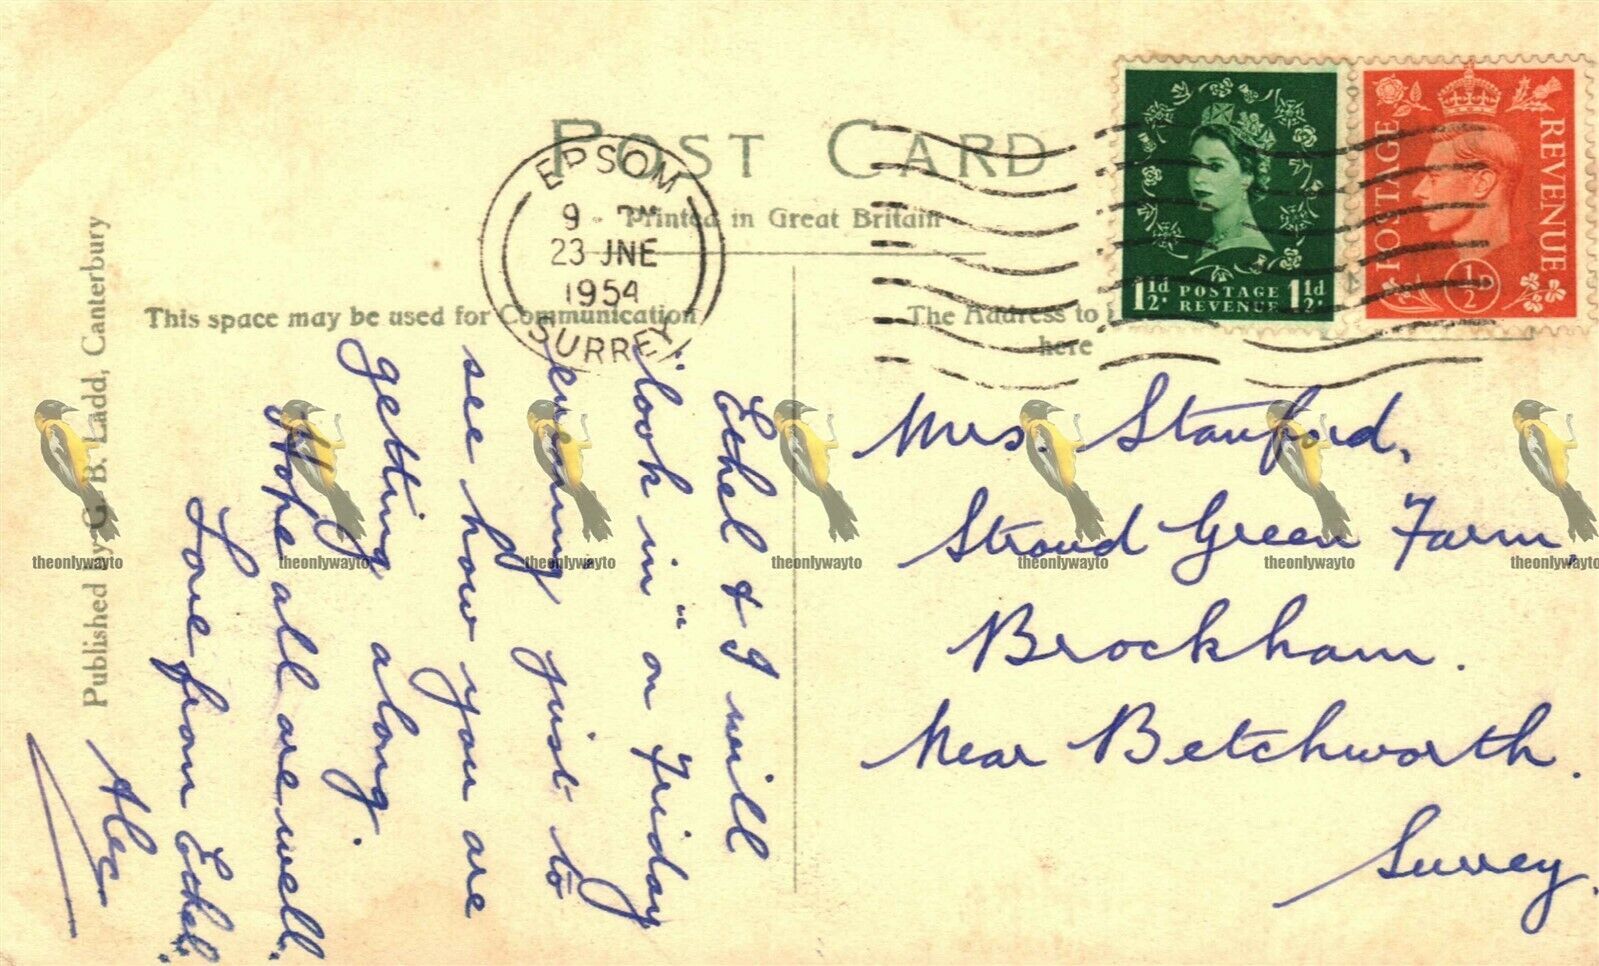 POST CARD
Printed in Great Britain
This space may be used for Communication
The Address to
here
EPSOM
9 - PM
23 JNE
1954
SURREY
1½d POSTAGE 1½d
REVENUE
POSTAGE
REVENUE
½D
Published by G. B. Ladd, Canterbury
Ethel & I will
"look in" on Friday
evening just to
see how you are
getting along.
Hope all are well.
Love from Ethel
Alec
Mrs. Stanford,
Stroud Green Farm,
Brockham.
Near Betchworth.
Surrey.
theonlywayto
theonlywayto
theonlywayto
theonlywayto
theonlywayto
theonlywayto
theonlywayto